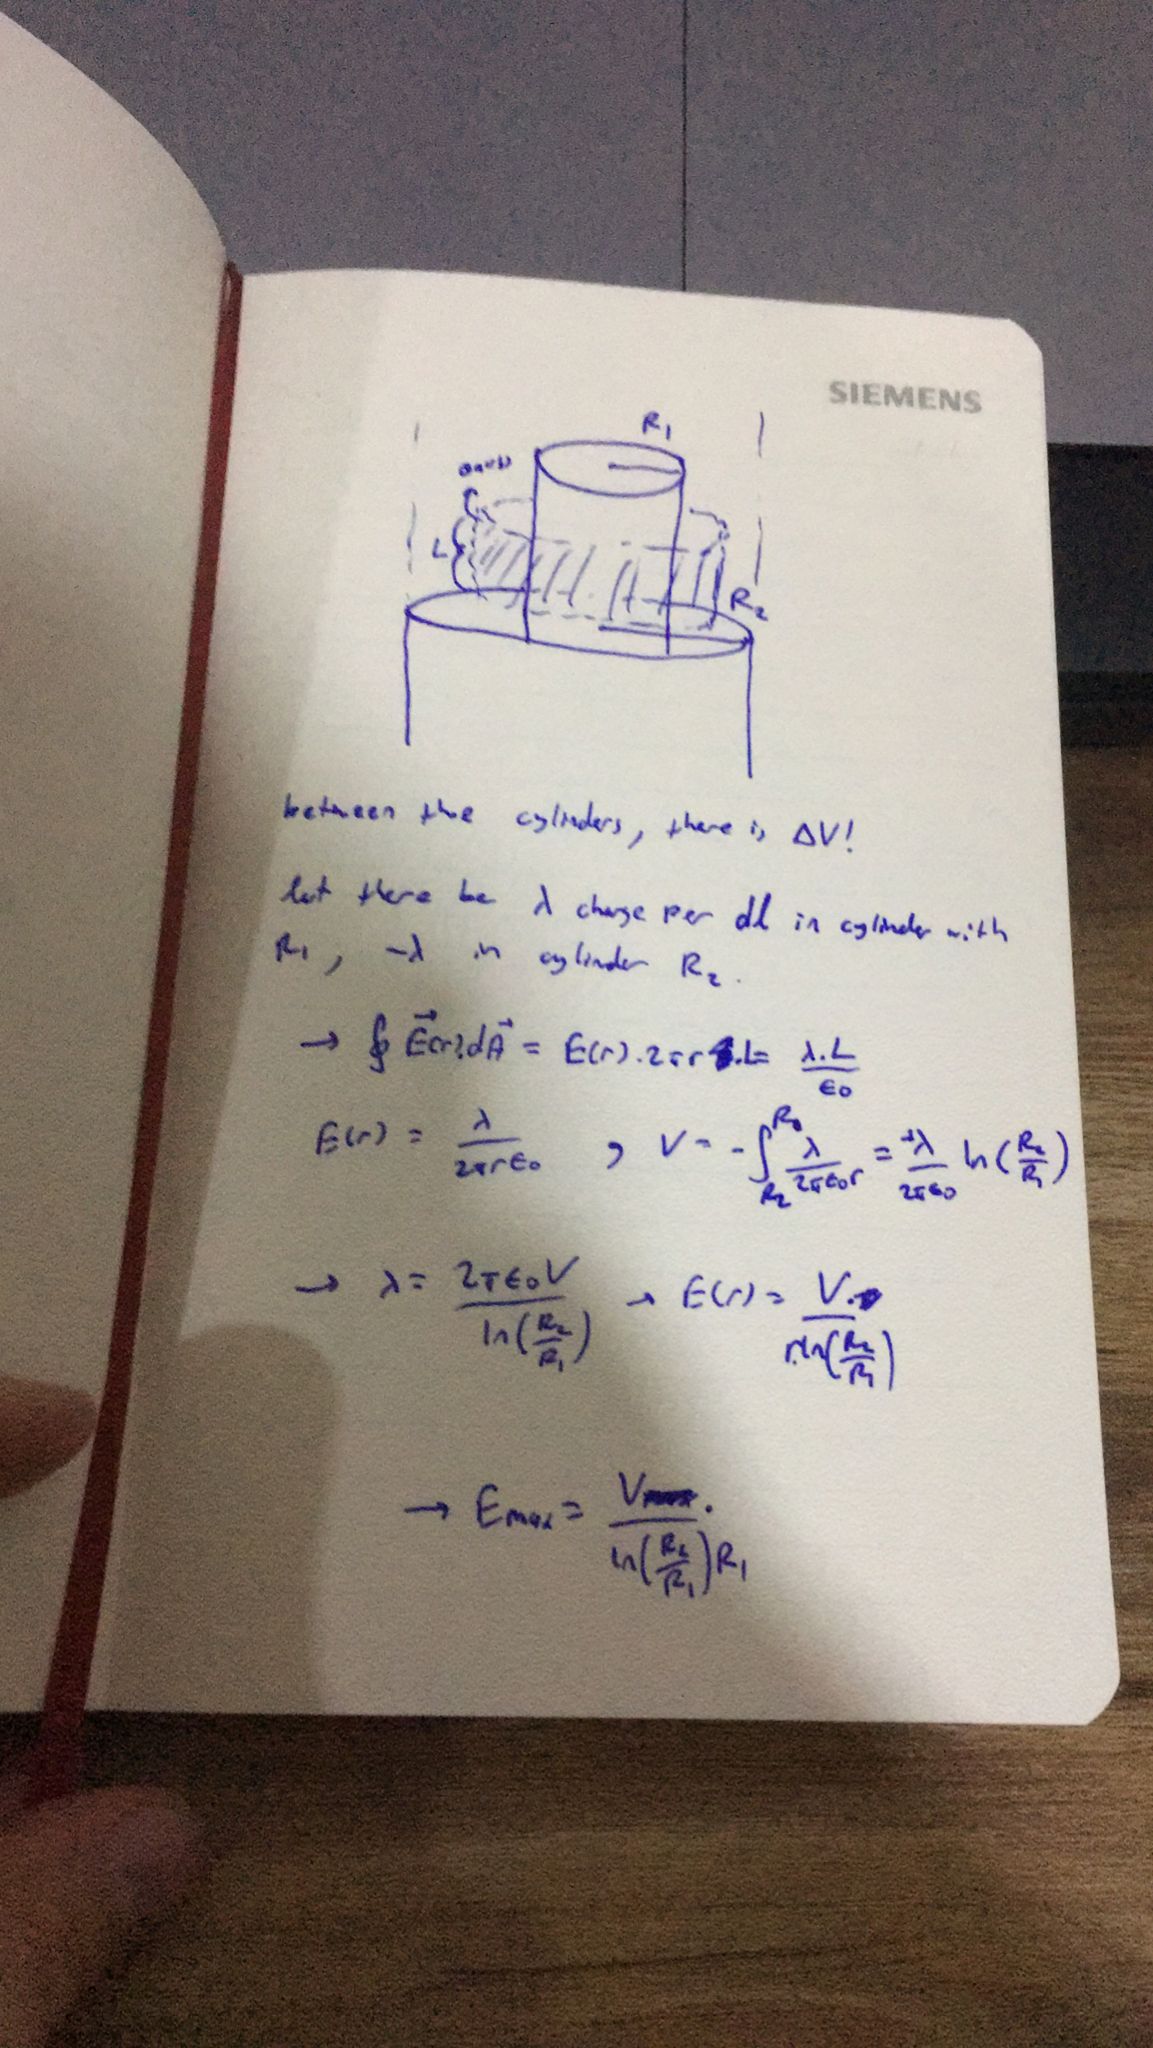 SIEMENS
R₁
Gauss
L
R₂
between the cylinders, there is ΔV!
let there be λ charge per dl in cylinder with
R₁, -λ in cylinder R₂.
→ ∮ E⃗(r).dA⃗ = E(r).2πr.L = λ.L/ε₀
E(r) = λ/2πrε₀ , V = -∫ λ/2πε₀r = +λ/2πε₀ ln(R₂/R₁)
→ λ = 2πε₀V/ln(R₂/R₁) → E(r) = V/r.ln(R₂/R₁)
→ Emax = V/ln(R₂/R₁)R₁